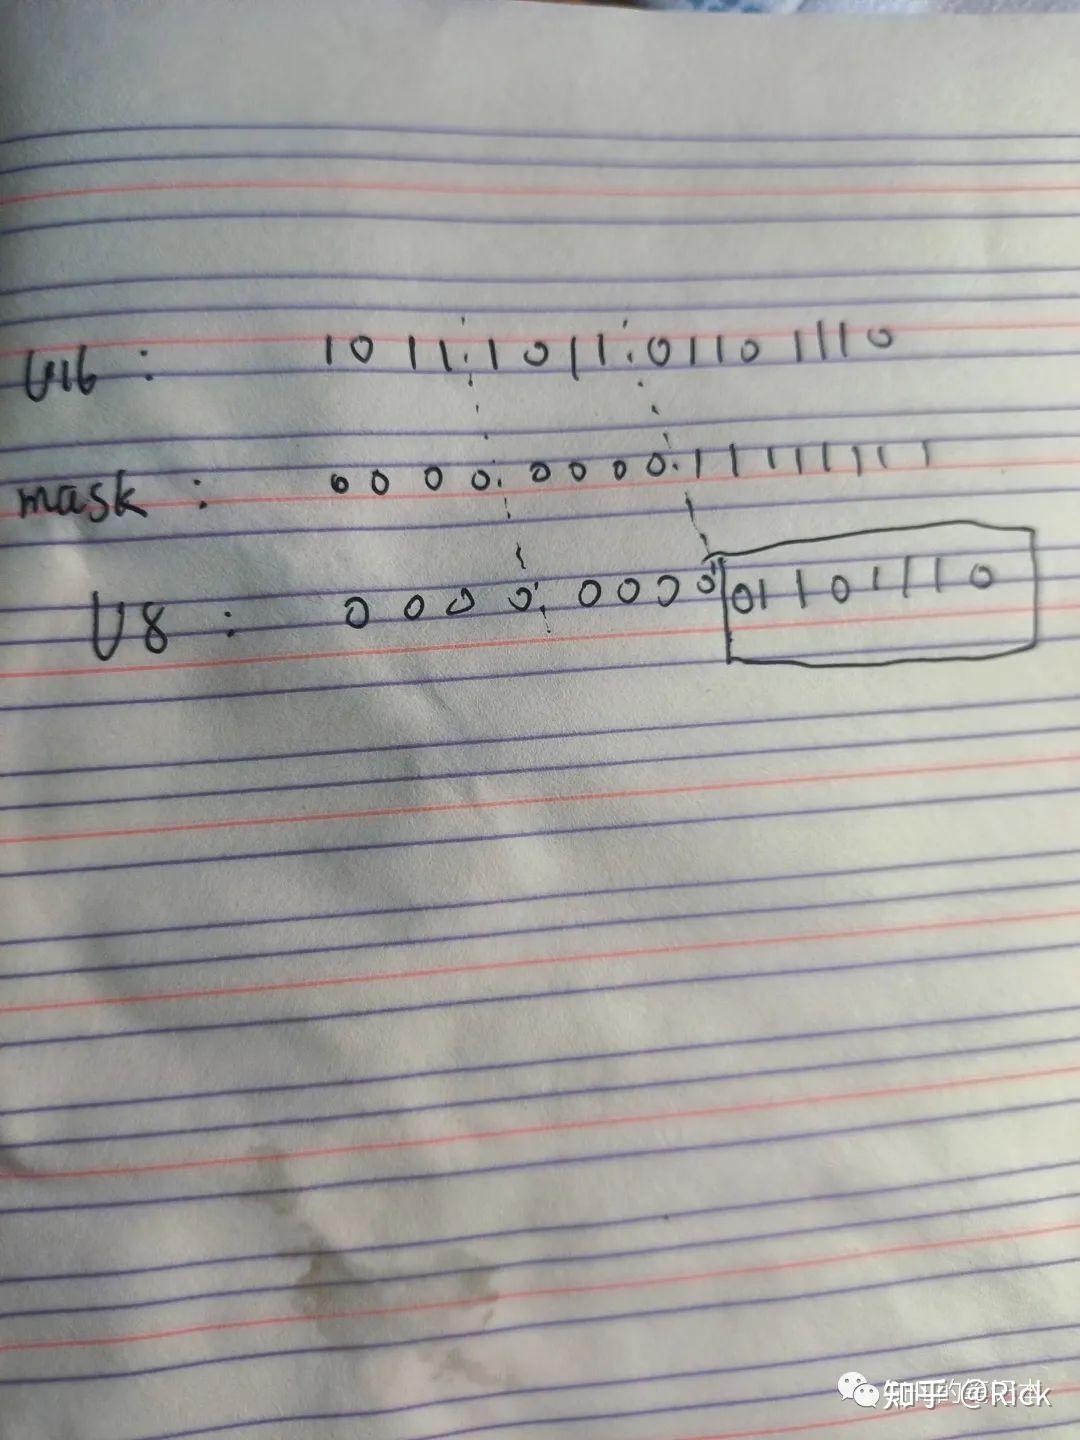 U16 : 1011.1011.01101110
mask : 0000.0000.11111111
U8 : 0000.0000 01101110
知乎 @Rick